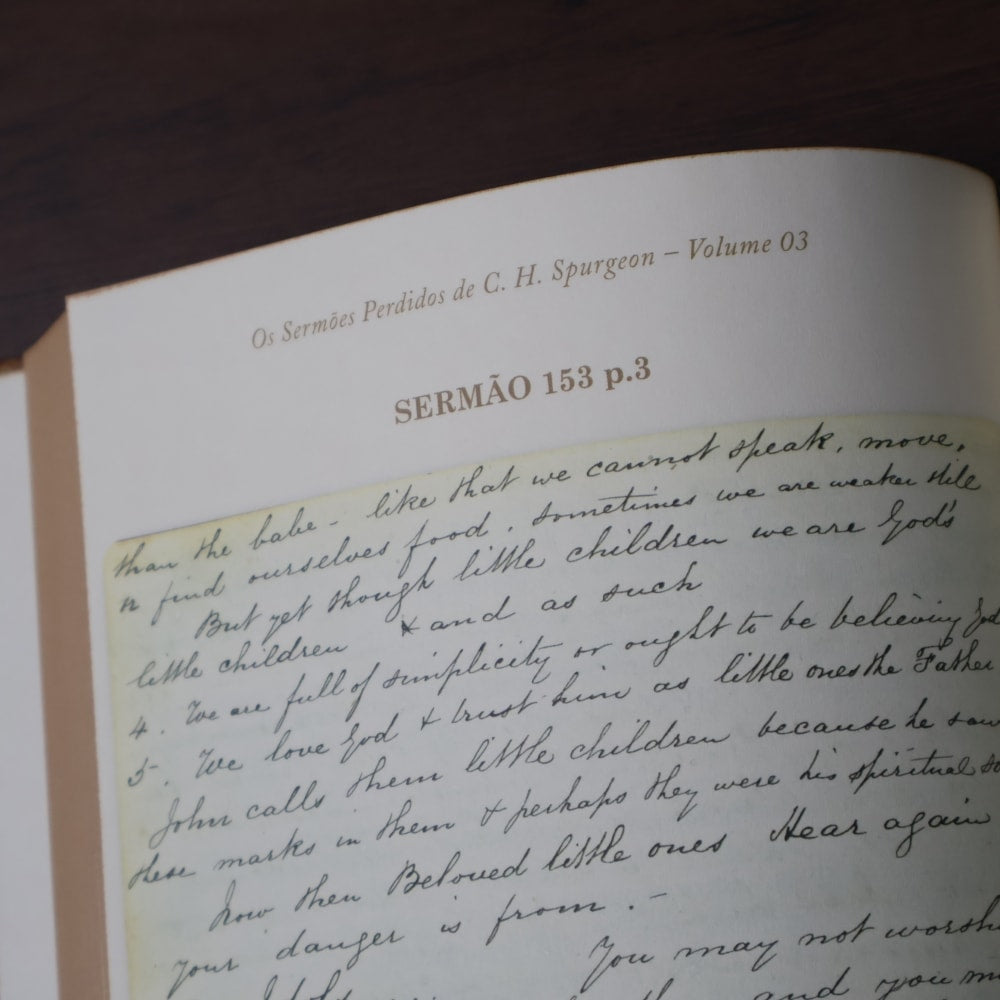 Os Sermões Perdidos de C. H. Spurgeon – Volume 03
SERMÃO 153 p.3
than the babe - like that we cannot speak, move,
r find ourselves food. sometimes we are weaker still
But yet though little children we are God's
little children & and as such
4. We are full of simplicity or ought to be believing God
5. We love God & trust him as little ones the Father
John calls them little children because he saw
these marks in them & perhaps they were his spiritual
Now then Beloved little ones Hear again
your danger is from. -
You may not
and you